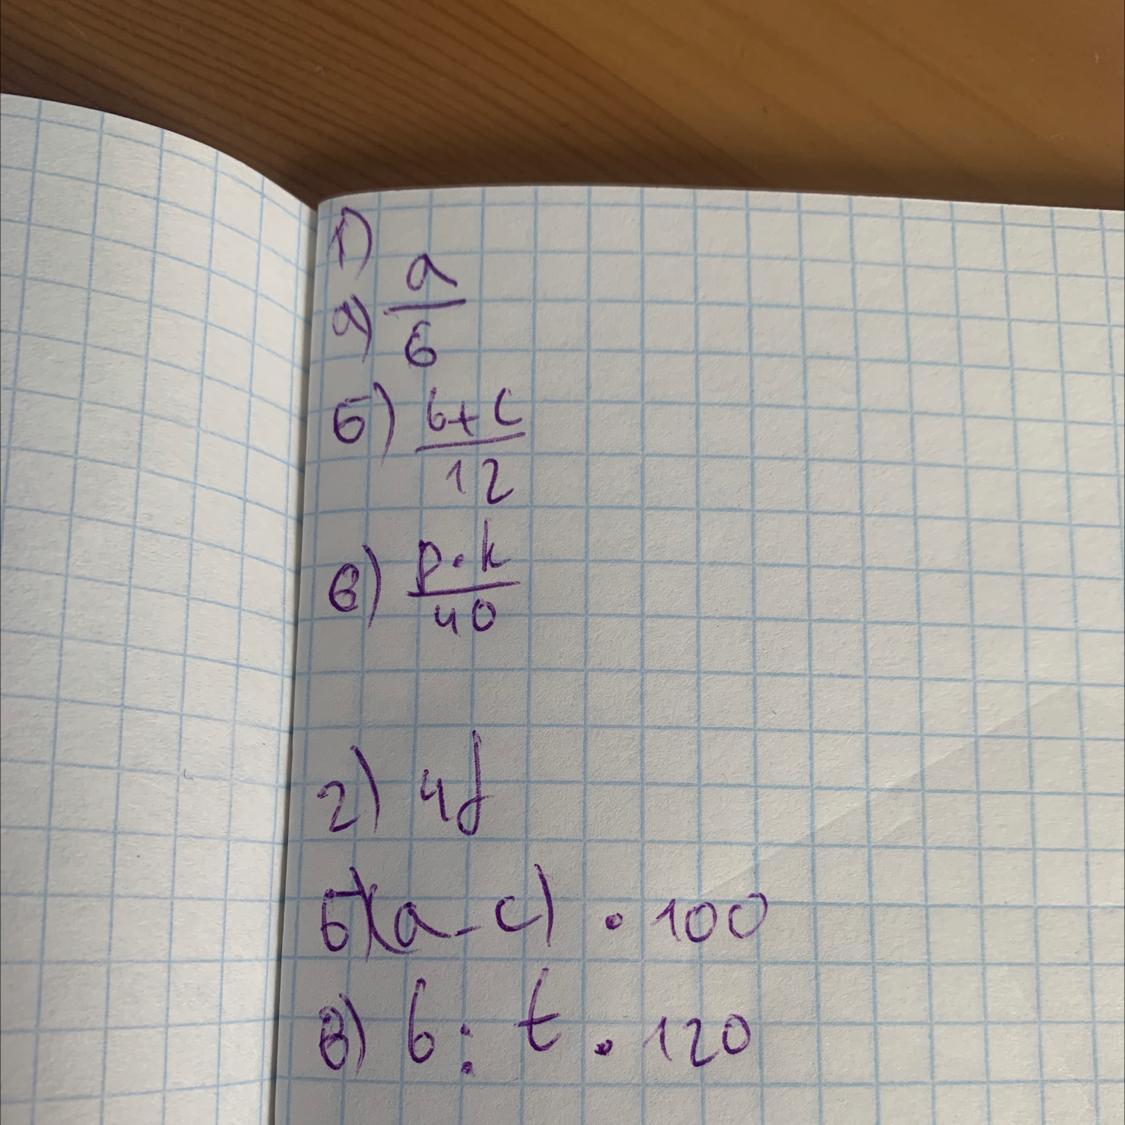 1)
а) a/6
б) (b+c)/12
в) (p·k)/40
2) 4f
б)(a-c)·100
в) b:t·120